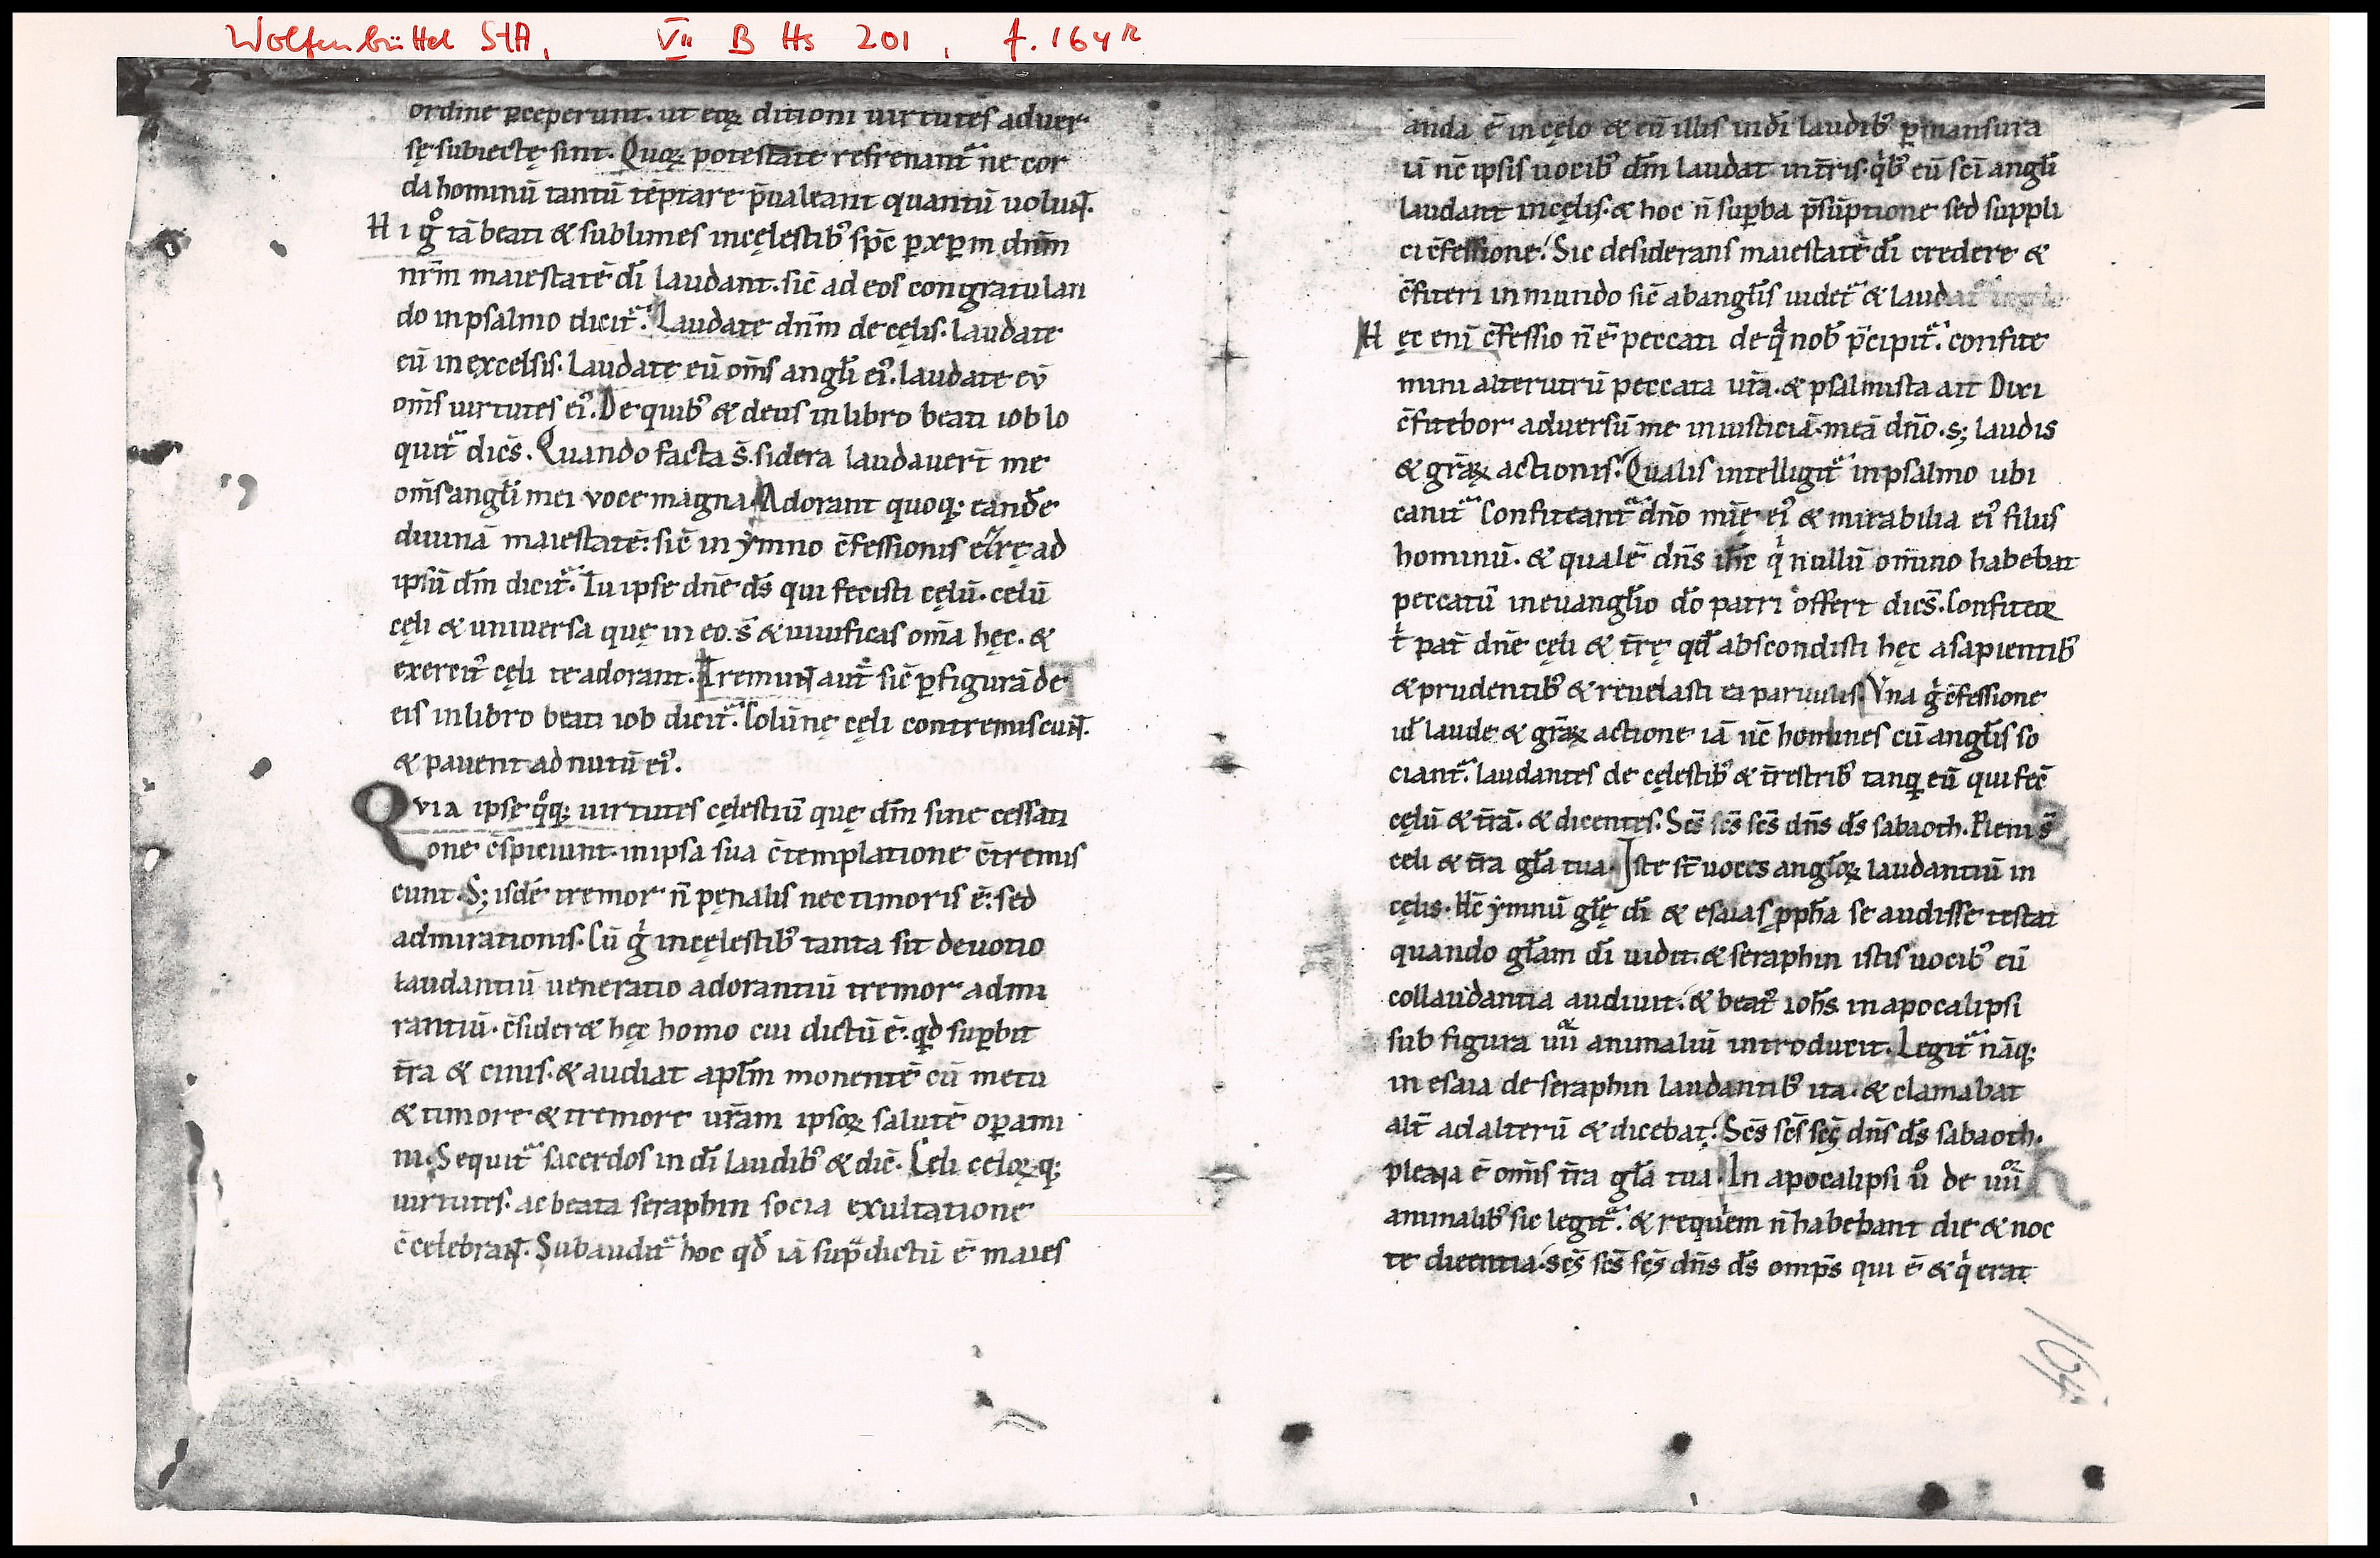 Wolfenbüttel StA, VII B Hs 201, f. 164r
ordine ꝑceperunt. ut eoꝝ ditioni uirtutes aduer
sę subiectę sint. Quoꝝ potestate refrenant᷑ ne cor
da hominū tantū tēptare p̄ualeant quantū uolunt.
Hi gͦ tā beati & sublimes in cęlestibꝰ spc̄ ꝑ xp̄m dnm̄
nr̄m maiestatē dī laudant. sic̄ ad eos congratulan
do in psalmo dicit᷑. Laudate dnm̄ de cęlis. laudate
eū in excelsis. Laudate eū om̄s angłi eiꝰ. laudate eū
om̄s uirtutes eiꝰ. De quibꝰ & deus in libro beati iob lo
quit᷑ dicēs. Quando facta s̄. sidera laudauer̄t me
om̄s angłi mei voce magna. Adorant quoqꝫ eandē
diuinā maiestatē: sic̄ in ẏmno c̄fessionis ad
ipsū dm̄ dicit᷑. Tu ipse dn̄e ds̄ qui fecisti cęlū. celū
cęli & uniuersa quę in eo. s̄ & uiuificas om̄a hęc. &
exercitꝰ cęli te adorant. Tremunt aut̄ sic̄ ꝑ figurā de
eis in libro beati iob dicit᷑. Colūnę cęli contremiscunt.
& pauent ad nutū eiꝰ.
Qvia ipse qͦqꝫ uirtutes cęlestiū quę dm̄ sine cessati
one c̄spiciunt. in ipsa sua c̄templatione c̄tremis
cunt. Sꝫ isdē tremor n̄ pęnalis nec timoris ē: sed
admirationis. Cū gͥ in cęlestibꝰ tanta sit deuotio
laudantiū ueneratio adorantiū tremor admi
rantiū. c̄sideret hęc homo cui dictū ē: qd̄ suꝑbit
tr̄a & cinis. & audiat apłm monentē cū metu
& timore & tremore ur̄am ipsoꝝ salutē oꝑami
ni. Sequit᷑ sacerdos in dī laudibꝰ & dic̄. Celi celoꝝqꝫ
uirtutes. ac beata seraphin socia exultatione
c̄celebrant. Subaudit᷑ hoc qd̄ iā sup̄dictū ē maies
anda ē in cęlo & cū illis in dī laudibꝰ ꝑmansura
iā nc̄ ipsis uocibꝰ dm̄ laudat in tr̄is. qͥbꝰ eū sc̄i angłi
laudant in cęlis. & hoc n̄ suꝑba p̄sūptione sed suppli
ci c̄fessione. Sic desiderans maiestatē dī credere &
c̄fiteri in mundo sic̄ ab angłis uidet᷑ & laudat᷑
Hęc eni c̄fessio n̄ ē peccati de qͣ nob̄ p̄cipit᷑. confite
mini alterutrū peccata ur̄a. & psalmista ait Dixi
c̄fitebor aduersū me iniusticiā meā dn̄o. sꝫ laudis
& gr̄aꝝ actionis. Qualis intelligit᷑ in psalmo ubi
canit᷑ Confiteant᷑ dn̄o mīę eiꝰ & mirabilia eiꝰ filiis
hominū. & qualē dn̄s ihc̄ qͥ nullū om̄ino habebat
peccatū in euangłio dō patri offert dicēs. Confiteor
tͥ pat̄ dn̄e cęli & tr̄ę qd̄ abscondisti hęc a sapientibꝰ
& prudentibꝰ & reuelasti ea paruulis. Vna gͥ c̄fessione
id̄ laude & gr̄aꝝ actione iā nc̄ homines cū angłis so
ciant᷑. laudantes de cęlestibꝰ & tr̄estribꝰ tanqͣ eū qui fec̄
cęlū & tr̄ā. & dicentes. Sc̄s sc̄s sc̄s dn̄s ds̄ sabaoth. Pleni s̄
celi & tr̄a gła tua. Iste st̄ uoces angłoꝝ laudantiū in
cęlis. Hc̄ ẏmnū głę dī & esaias ꝓph̄a se audisse testat᷑
quando głam dī uidit. & seraphin istis uocibꝰ eū
collaudantia audiuit. & beatꝰ ioh̄s in apocalipsi
sub figura iiii animaliū introducit. Legit᷑ nāqꝫ
in esaia de seraphin laudantibꝰ ita. & clamabat
alt̄ ad alterū & dicebat. Sc̄s sc̄s sc̄s dn̄s ds̄ sabaoth.
plena ē om̄is tr̄a gła tua. In apocalipsi uͦ de iiii
animalibꝰ sic legit᷑. & requiem n̄ habebant die & noc
te dicentia. sc̄s sc̄s sc̄s dn̄s ds̄ omp̄s qui ē & qͥ erat
164